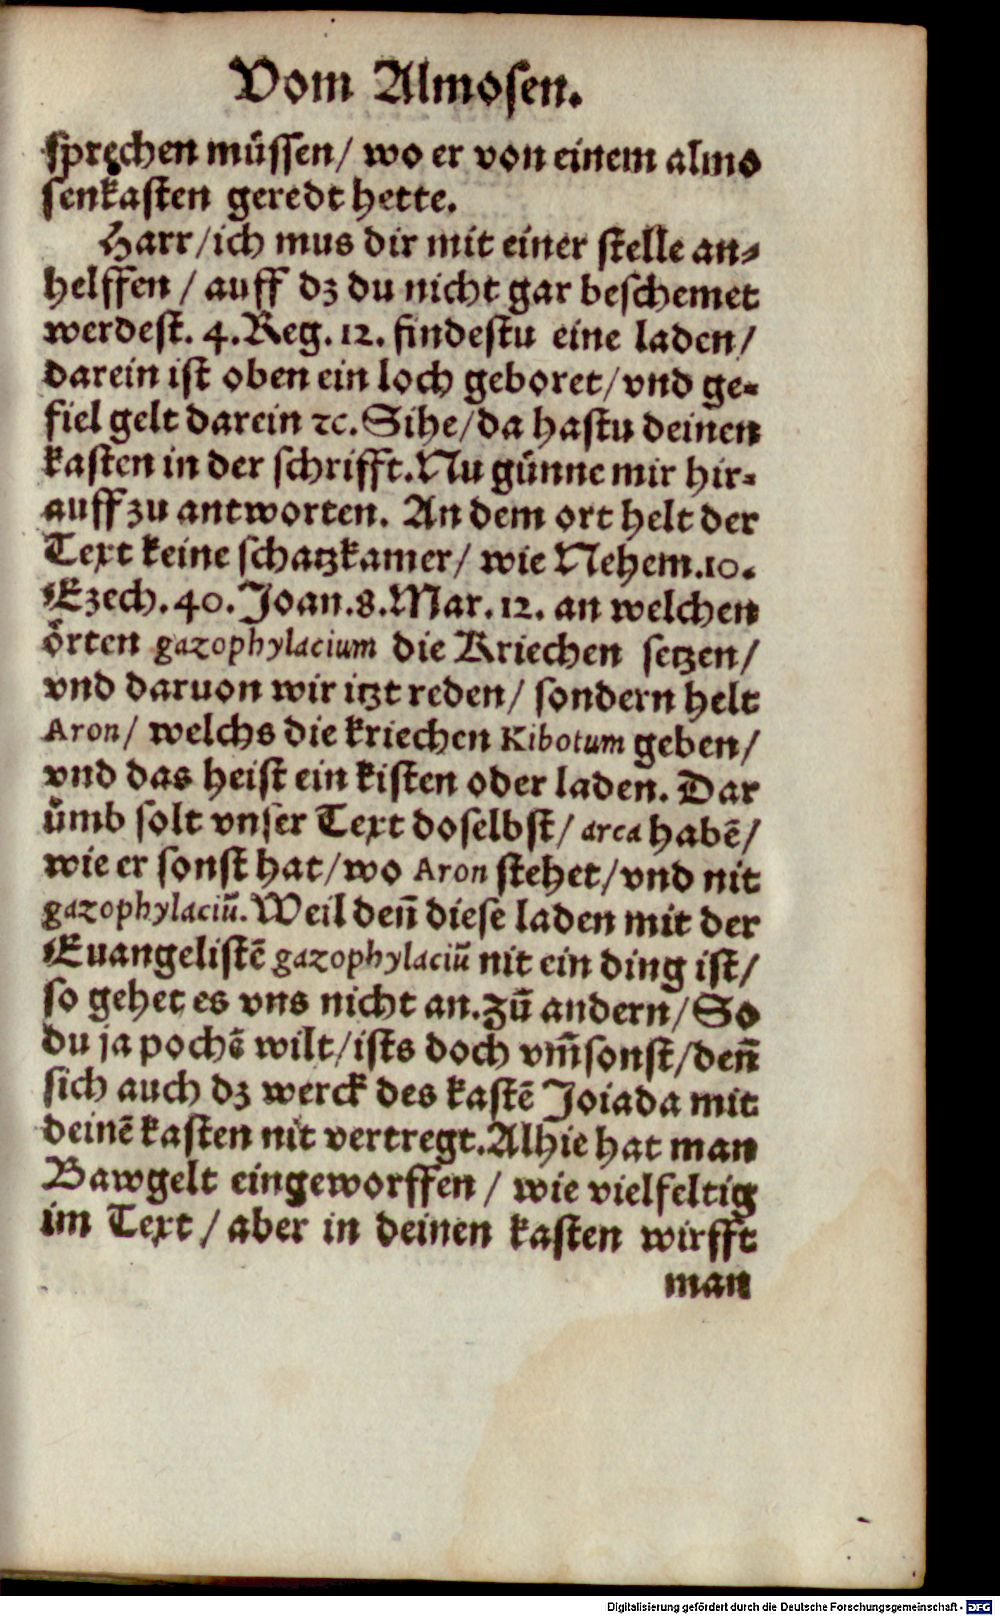 Vom Almosen.
sprechen müssen/ wo er von einem almo
senkasten geredt hette.
Harr/ich mus dir mit einer stelle an-
helffen / auff dz du nicht gar beschemet
werdest. 4. Reg. 12. findestu eine laden/
darein ist oben ein loch geboret/vnd ge-
fiel gelt darein ꝛc. Sihe/da hastu deinen
kasten in der schrifft. Nu günne mir hir-
auff zu antworten. An dem ort helt der
Text keine schatzkamer/ wie Nehem. 10.
Ezech. 40. Joan. 8. Mar. 12. an welchen
örten gazophylacium die Kriechen setzen/
vnd daruon wir itzt reden/ sondern helt
Aron/ welchs die kriechen Kibotum geben/
vnd das heist ein kisten oder laden. Dar
ümb solt vnser Text doselbst/ arca habē/
wie er sonst hat/wo Aron stehet/vnd nit
gazophylaciū. Weil deñ diese laden mit der
Euangelistē gazophylaciū nit ein ding ist/
so gehet es vns nicht an. Zū andern/ So
du ja pochē wilt/ists doch vm̄sonst/deñ
sich auch dz werck des kastē Joiada mit
deinē kasten nit vertregt. Alhie hat man
Bawgelt eingeworffen / wie vielfeltig
im Text / aber in deinen kasten wirfft
man
Digitalisierung gefördert durch die Deutsche Forschungsgemeinschaft - DFG